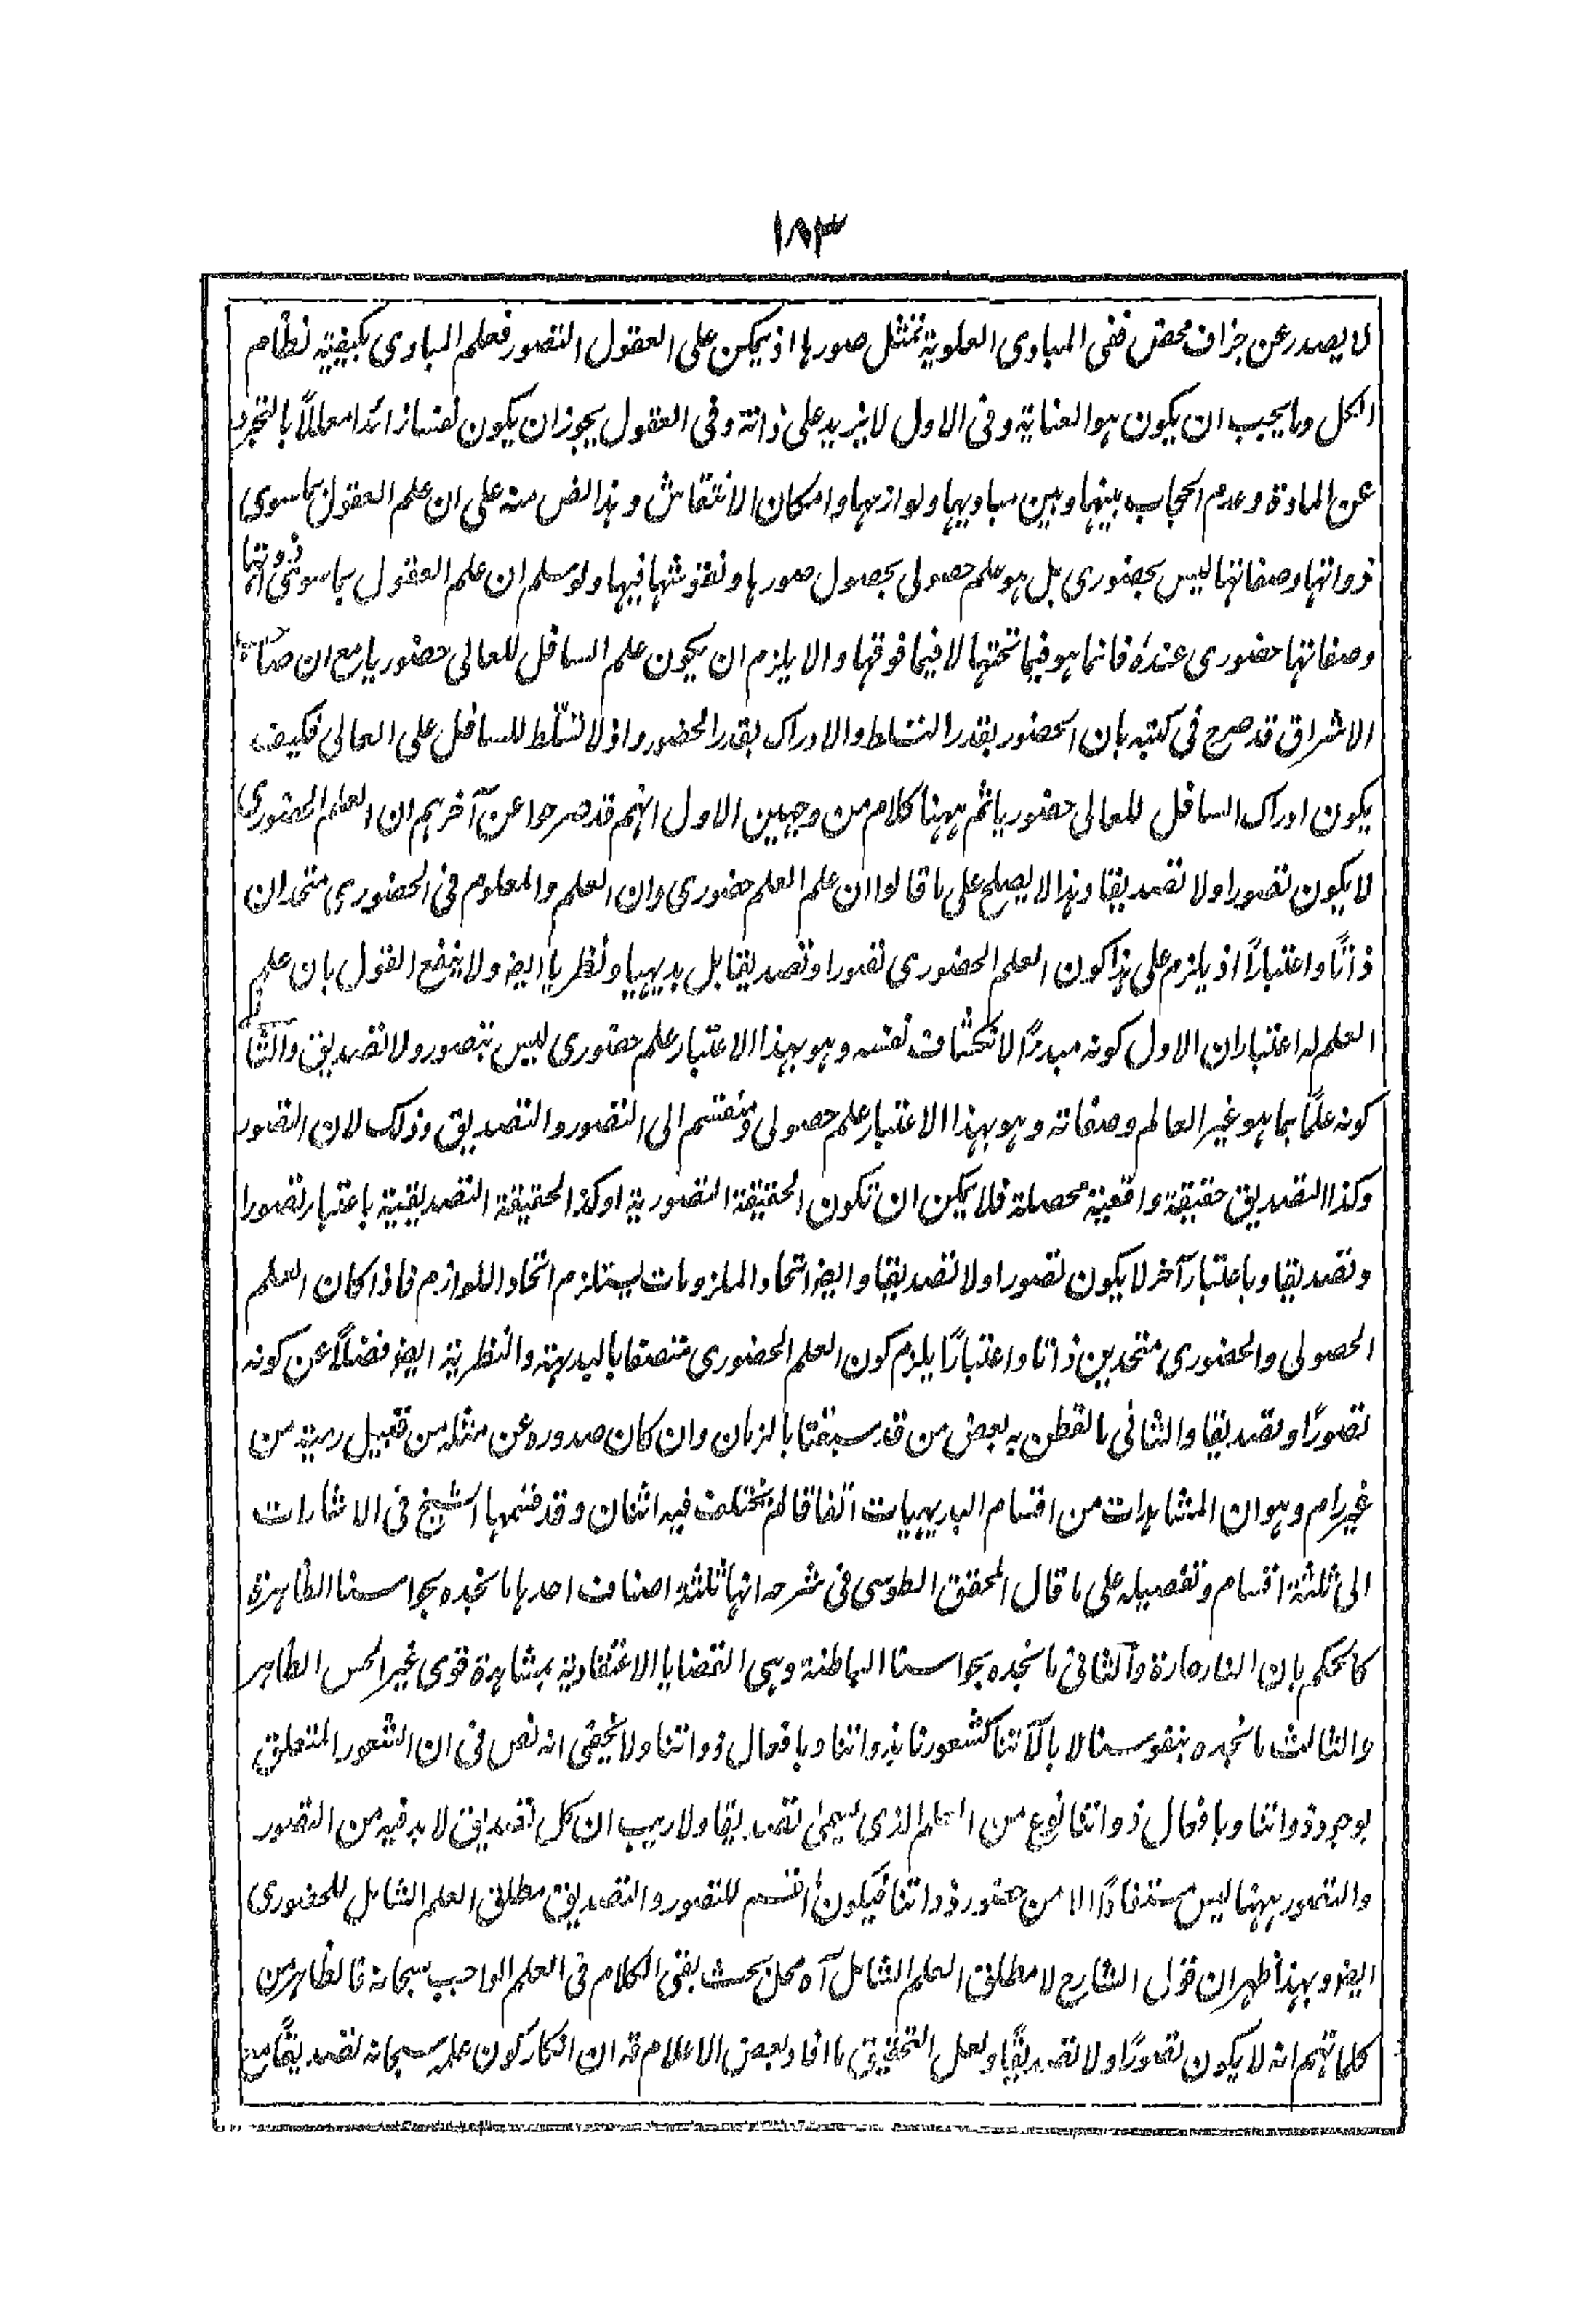 ١٨٣
لا يصدر عن جزاف محض ففى المبادى العلوية تمثل صورها اذ يمكن على العقول التصور فعلم المبادى بكيفيته نظام
الكل وما يجب ان يكون هو العناية وفى الاول لا يزيد على ذاته وفى العقول يجوز ان يكون نفسا زائدا معللاً بالتجرد
عن المادة وعدم الحجاب بينها وبين مباديها ولوازمها وامكان الانتقاش وهذا نص منه على ان علم العقول بما سوى
ذواتها وصفاتها ليس بحضورى بل هو علم حصولى بحصول صورها ونقوشها فيها ولو سلم ان علم العقول بما سوى ذواتها
وصفاتها حضورى عنده فانما هو فيما تحتها لا فيما فوقها والا يلزم ان يكون علم السافل للعالى حضوريا مع ان صاحب
الاشراق قد صرح فى كتبه بان الحضور بقدر التسلط والادراك بقدر الحضور واذ لا تسلّط للسافل على العالى فكيف
يكون ادراك السافل للعالى حضوريا ثم ههنا كلام من وجهين الاول انهم قد صرحوا عن آخرهم ان العلم الحضورى
لا يكون تصورا ولا تصديقا وهذا لا يصلح على ما قالوا ان علم العلم حضورى وان العلم والمعلوم فى الحضورى متحدان
ذاتًا واعتبارًا اذ يلزم على هذا كون العلم الحضورى تصورا وتصديقا بل بديهيا ونظريا ايضا ولا ينفع القول بان علم
العلم له اعتباران الاول كونه مبدءًا لانكشاف نفسه وهو بهذا الاعتبار علم حضورى ليس بتصور ولا تصديق والثانى
كونه علمًا بما هو غير العالم وصفاته وهو بهذا الاعتبار علم حصولى ومنقسم الى التصور والتصديق وذلك لان التصور
وكذا التصديق حقيقة واقعية محصلة فلا يمكن ان تكون الحقيقة التصورية او كذا الحقيقة التصديقية باعتبار تصورا
وتصديقا وباعتبار آخر لا يكون تصورا ولا تصديقا وايضا اتحاد الملزومات يستلزم اتحاد اللوازم فاذا كان العلم
الحصولى والحضورى متحدين ذاتا واعتبارًا يلزم كون العلم الحضورى متصفا بالبديهة والنظرية ايضا فضلًا عن كونه
تصورًا وتصديقا والثانى ما تفطن به بعض من قد سبقنا بالزمان وان كان صدوره عن مثله من قبيل رمية من
غير رام وهو ان المشاهدات من اقسام البديهيات اتفاقا لم يختلف فيه اثنان وقد قسمها الشيخ فى الاشارات
الى ثلثة اقسام وتفصيله على ما قال المحقق الطوسى فى شرحه انها ثلثة اصناف احدها ما نجده بحواسنا الظاهرة
كالحكم بان النار حارة والثانى ما نجده بحواسنا الباطنة وهى القضايا الاعتقادية بمشاهدة قوى غير الحس الظاهر
والثالث ما نجده بنفوسنا لا بآلاتنا كشعورنا بذواتنا وبافعال ذواتنا ولا يخفى انه نص فى ان الشعور المتعلق
بوجود ذواتنا وبافعال ذواتنا نوع من العلم الذى يسمى تصديقا ولا ريب ان كل تصديق لا بد فيه من التصور
والتصور ههنا ليس مستفادًا الا من حضور ذواتنا فيكون انقسم للتصور والتصديق مطلق العلم الشامل للحضورى
ايضا وبهذا ظهر ان قول الشارح لا مطلق العلم الشامل آه محل بحث بقى الكلام فى العلم الواجب سبحانه فالظاهر من
كلماتهم انه لا يكون تصورًا ولا تصديقًا ولعل التحقيق ما افاد بعض الاعلام قه ان انكار كون علمه سبحانه تصديقًا من